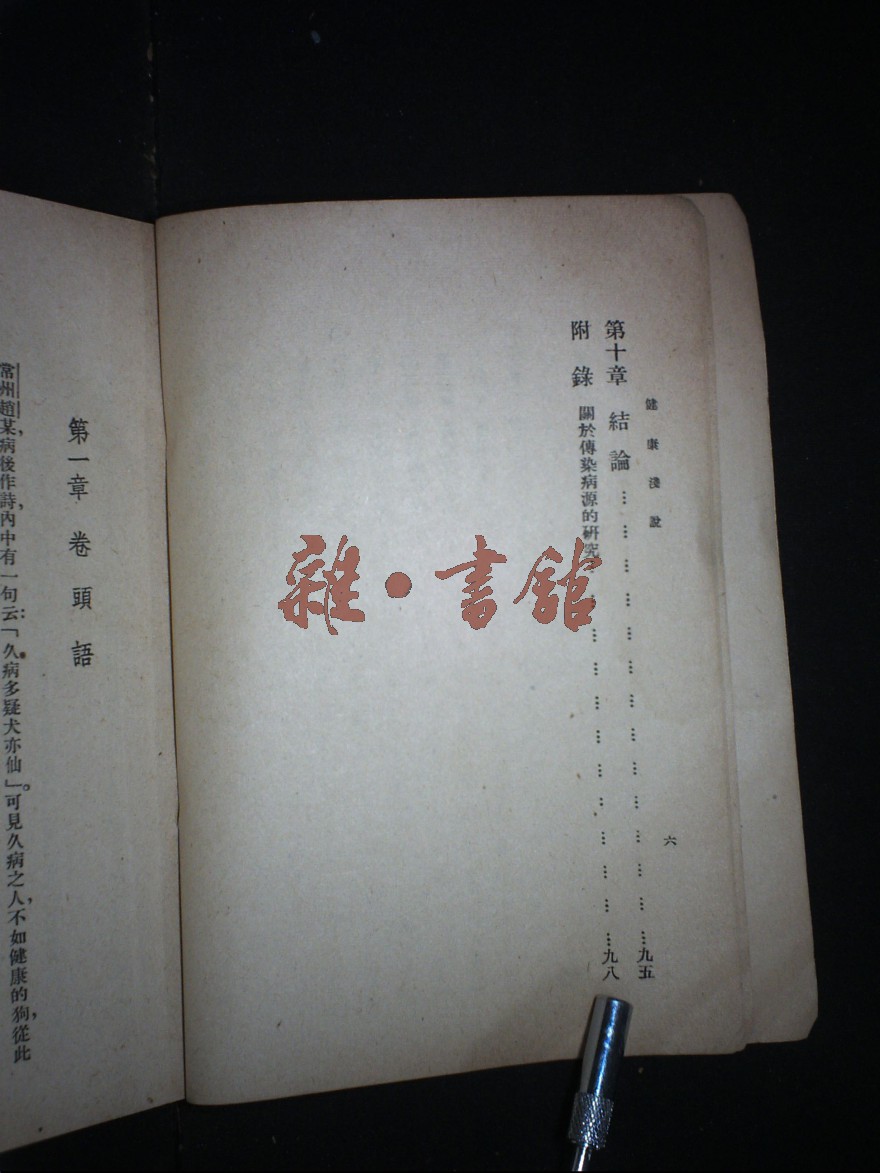 健康淺說
六
第十章 結論 ……………………………… 九五
附錄 關於傳染病源的研究 ……………………………… 九八
第一章 卷頭語
常州趙某，病後作詩，內中有一句云：「久病多疑犬亦仙」。可見久病之人，不如健康的狗，從此
雜·書館